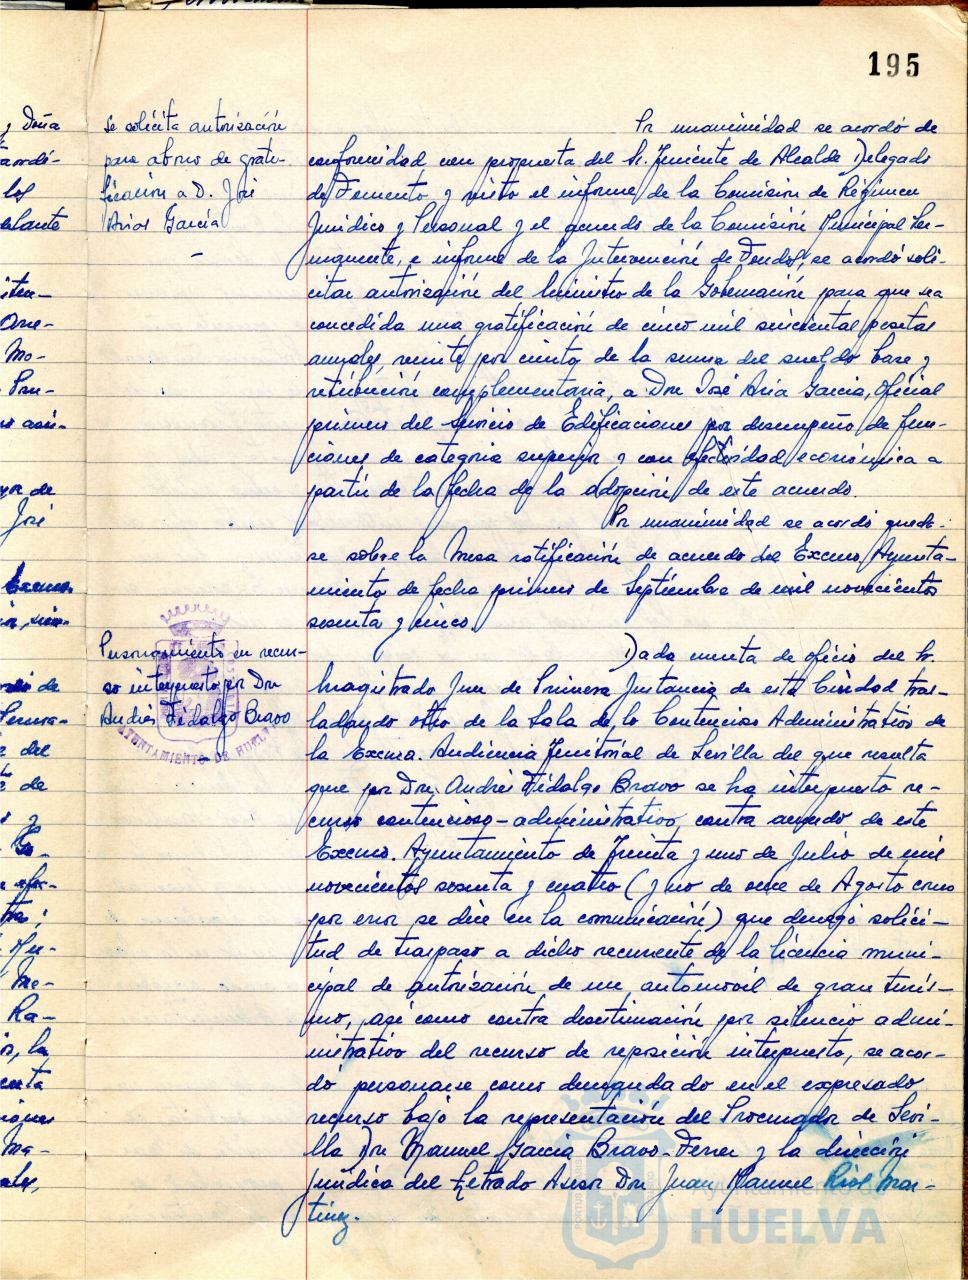 195
Se solicita autorización
para abono de grati-
ficación a D. José
Arias García
Por unanimidad se acordó de
conformidad con propuesta del Sr. Teniente de Alcalde Delegado
de Fomento, y visto el informe de la Comisión de Régimen
Jurídico y Personal y el acuerdo de la Comisión Municipal Per-
manente, e informe de la Intervención de Fondos, se acordó soli-
citar autorización del Ministro de la Gobernación para que sea
concedida una gratificación de cinco mil seiscientas pesetas
anuales, veinte por ciento de la suma del sueldo base y
retribución complementaria, a Don José Aria García, Oficial
primero del Servicio de Edificaciones por desempeño de fun-
ciones de categoría superior y con efectividad económica a
partir de la fecha de la adopción de este acuerdo.
Por unanimidad se acordó queda-
se sobre la Mesa ratificación de acuerdo del Excmo. Ayunta-
miento de fecha primero de Septiembre de mil novecientos
sesenta y cinco.
Personamiento en recur-
so interpuesto por Don
Andrés Fidalgo Bravo
AYUNTAMIENTO DE HUELVA
Dada cuenta de oficio del Sr.
Magistrado Juez de Primera Instancia de esta Ciudad tras-
ladando otro de la Sala de lo Contencioso Administrativo de
la Excma. Audiencia Territorial de Sevilla del que resulta
que por Don Andrés Fidalgo Bravo se ha interpuesto re-
curso contencioso-administrativo, contra acuerdo de este
Excmo. Ayuntamiento de Treinta y uno de Julio de mil
novecientos sesenta y cuatro (y no de once de Agosto como
por error se dice en la comunicación) que denegó solici-
tud de traspaso a dicho recurrente de la licencia muni-
cipal de autorización de un automóvil de gran turis-
mo, así como contra desestimación por silencio admi-
nistrativo del recurso de reposición interpuesto, se acor-
dó personarse como demandado en el expresado
recurso bajo la representación del Procurador de Sevi-
lla Don Manuel García Bravo-Ferrer y la dirección
jurídica del Letrado Asesor Don Juan Manuel Ríos Mar-
tínez.
Ayuntamiento de
HUELVA